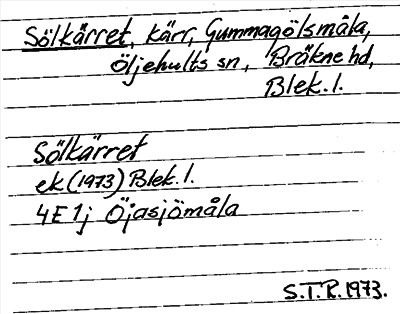 Sölkärret, kärr, Gummagölsmåla,
Öljehults sn, Bräkne hd,
Blek. l.
Sölkärret
ek (1973) Blek. l.
4E 1j Öjasjömåla
S.T.R. 1973.